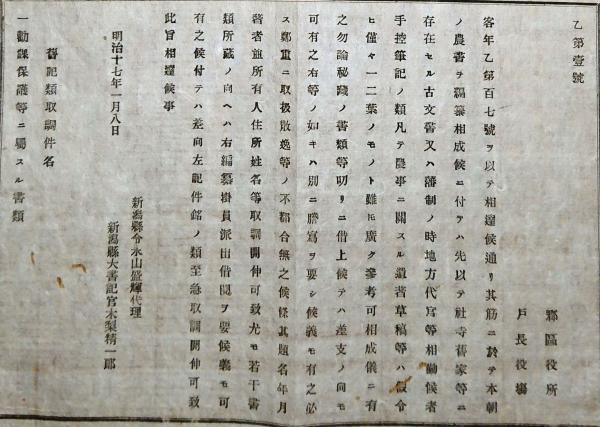 乙第壹號
郡區役所
戸長役塲
客年乙第百七號ヲ以テ相達候通リ其筋ニ於テ本朝
ノ農書ヲ編纂相成候ニ付テハ先以テ社寺舊家等ニ
存在セル古文書又ハ藩制ノ時地方代官等相勤候者
手控筆記ノ類凡テ農事ニ關スル遺著草稿等ハ假令
ヒ僅々一二葉ノモノト雖モ廣ク參考可相成儀ニ有
之勿論秘蔵ノ書類等切リニ借上候テハ差支ノ向モ
可有之右等ノ如キハ別ニ謄寫ヲ要シ候義モ有之必
ス鄭重ニ取扱散逸等ノ不都合無之候條其題名年月
著者並所有人住所姓名等取調開伸可致尤モ若干書
類所蔵ノ向ヘハ右編纂掛員派出借閲ヲ要候義モ可
有之候付テハ差向左記件銘ノ類至急取調開伸可致
此旨相達候事
明治十七年一月八日
新潟縣令永山盛輝代理
新潟縣大書記官木梨精一郎
舊記類取調件名
一勸課保護等ニ屬スル書類